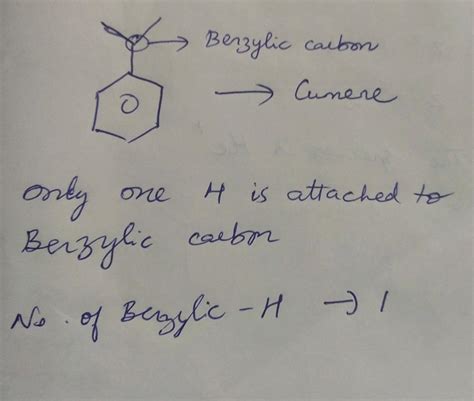 Benzylic carbon
Cumene
Only one H is attached to
Benzylic carbon
No. of Benzylic-H → 1